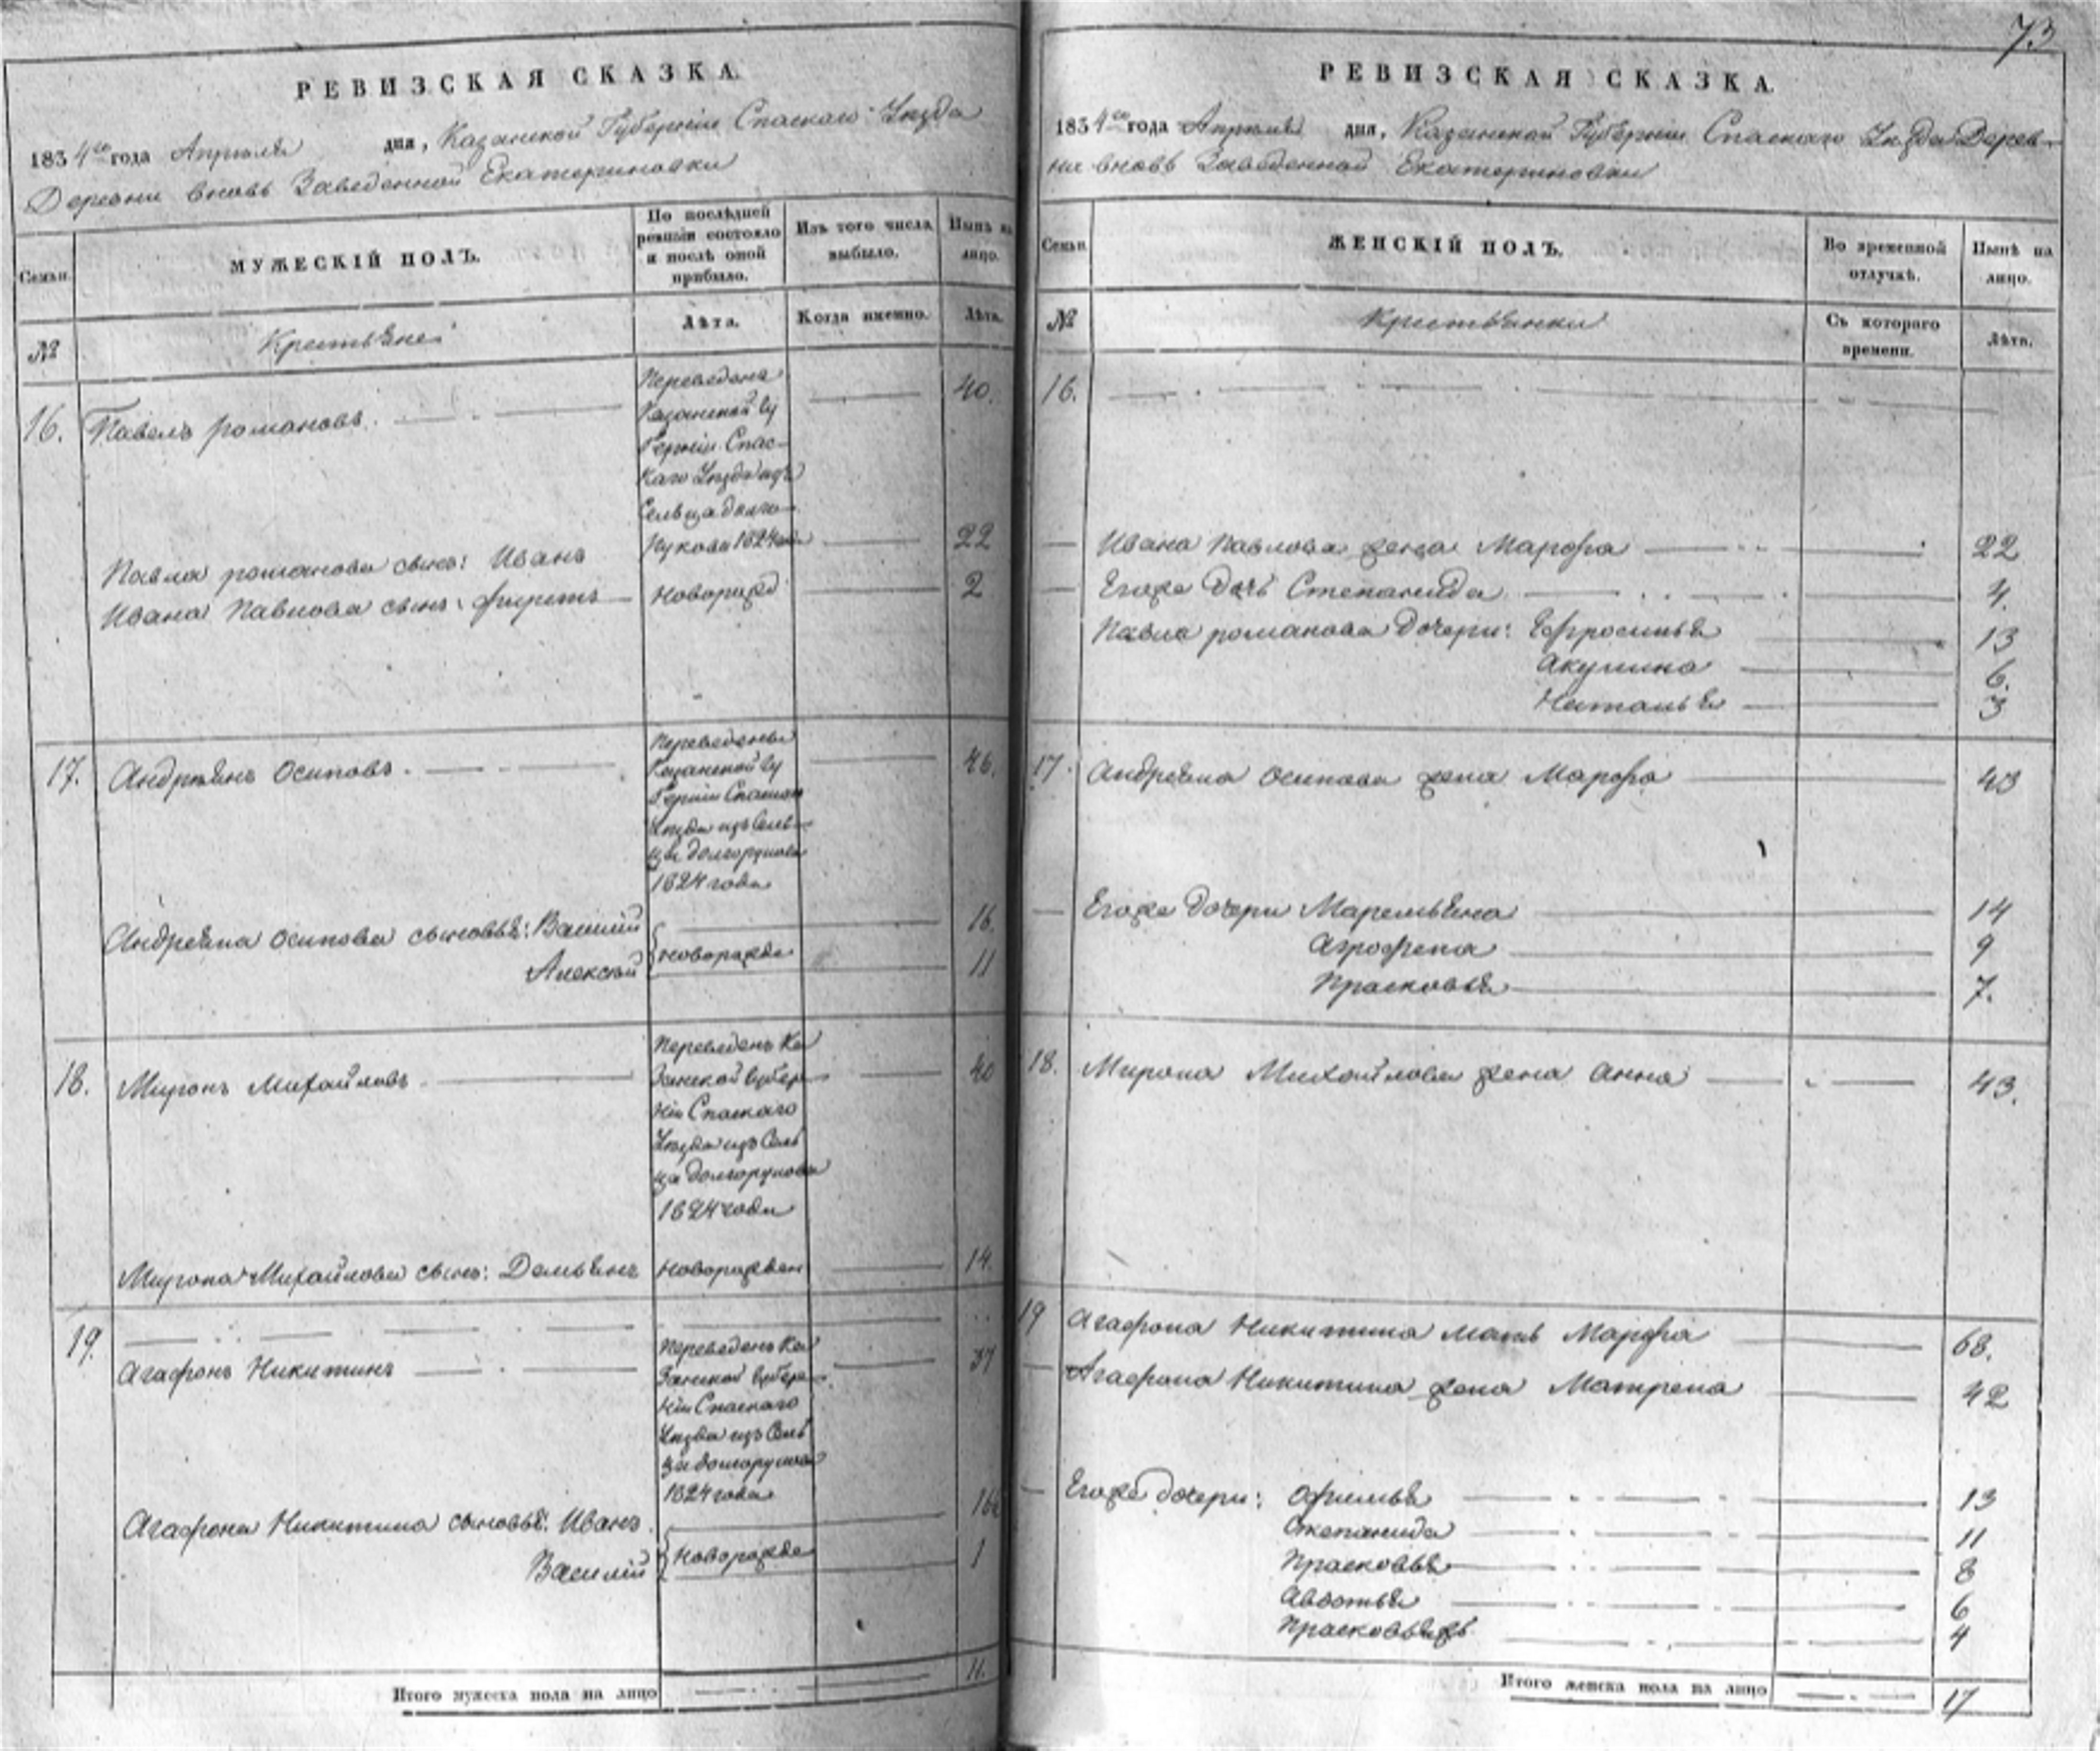 73
РЕВИЗСКАЯ СКАЗКА.
1834го года Апреля дня, Казанской Губернии Спаскаго Уезда
Деревни вновь Заведенной Екатериновки
Семьи. МУЖЕСКІЙ ПОЛЪ. По послѣдней ревизіи состояло и послѣ оной прибыло. Изъ того числа выбыло. Нынѣ на лицо.
№ Крестьяне Лѣта. Когда именно. Лѣта.
16. Павелъ романовъ. Переведенъ 40.
Казанской гу
берніи Спас
каго Уезда изъ
Сельца долго
Павла романова сынъ: Иванъ рукова 1824 года 22
Ивана Павлова сынъ Новорожд 2
17. Андреянъ Осиповъ. Переведены 46.
Казанской гу
берніи Спаскаго
Уезда изъ Сель
ца долгорукова
1824 года
Андреяна осипова сыновья: Василий 16.
Алексѣй Новорожде 11
18. Миронъ Михайловъ Переведенъ Ка 40
занской губер
ніи Спаскаго
Уезда изъ Сель
ца долгорукова
1824 года
Мирона Михайлова сынъ: Демьянъ Новорожден 14.
19.
Агафонъ Никитинъ Переведенъ Ка 37
занской губер
ніи Спаскаго
Уезда изъ Сель
ца долгорукова
1824 года
Агафона Никитина сыновья: Иванъ 16
Василій Новорожде 1
Итого мужеска пола на лицо 11.
РЕВИЗСКАЯ СКАЗКА.
1834го года Апреля дня, Казанской Губерніи Спаскаго Уезда Дерев
ни вновь Заведенной Екатериновки
Семьи. ЖЕНСКІЙ ПОЛЪ. Во временной отлучкѣ. Нынѣ на лицо.
№ Крестьянки Съ котораго времени. Лѣта.
16.
Ивана Павлова жена Марфа 22
Егоже дочь Степанида 4.
Павла романова дочери: Ефросинья 13
Акулина 6.
Наталья 3
17. Андреяна осипова жена Марфа 43
Егоже дочери Маремьяна 14
Агрофена 9
Прасковья 7.
18. Мирона Михайлова жена Анна 43.
19 Агафона Никитина мать Марфа 68.
Агафона Никитина жена Матрена 42
Егоже дочери: Офимья 13
Степанида 11
Прасковья 8
Авдотья 6
Прасковья жъ 4
Итого женска пола на лицо 17